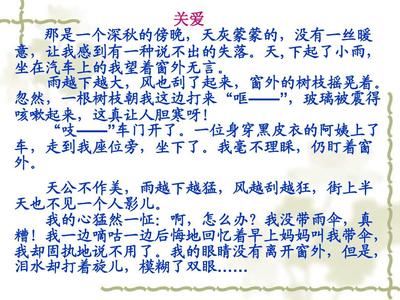 关爱
那是一个深秋的傍晚，天灰蒙蒙的，没有一丝暖
意，让我感到有一种说不出的失落。天,下起了小雨，
坐在汽车上的我望着窗外无言。
雨越下越大，风也刮了起来，窗外的树枝摇晃着。
忽然，一根树枝朝我这边打来“哐——”，玻璃被震得
咳嗽起来，这真让人胆寒呀！
“吱——”车门开了。一位身穿黑皮衣的阿姨上了
车，走到我座位旁，坐下了。我毫不理睬，仍盯着窗
外。
天公不作美，雨越下越猛，风越刮越狂，街上半
天也不见一个人影儿。
我的心猛然一怔：啊，怎么办？我没带雨伞，真
糟！我一边嘀咕一边后悔地回忆着早上妈妈叫我带伞，
我却固执地说不用了。我的眼睛没有离开窗外，但是，
泪水却打着旋儿，模糊了双眼……